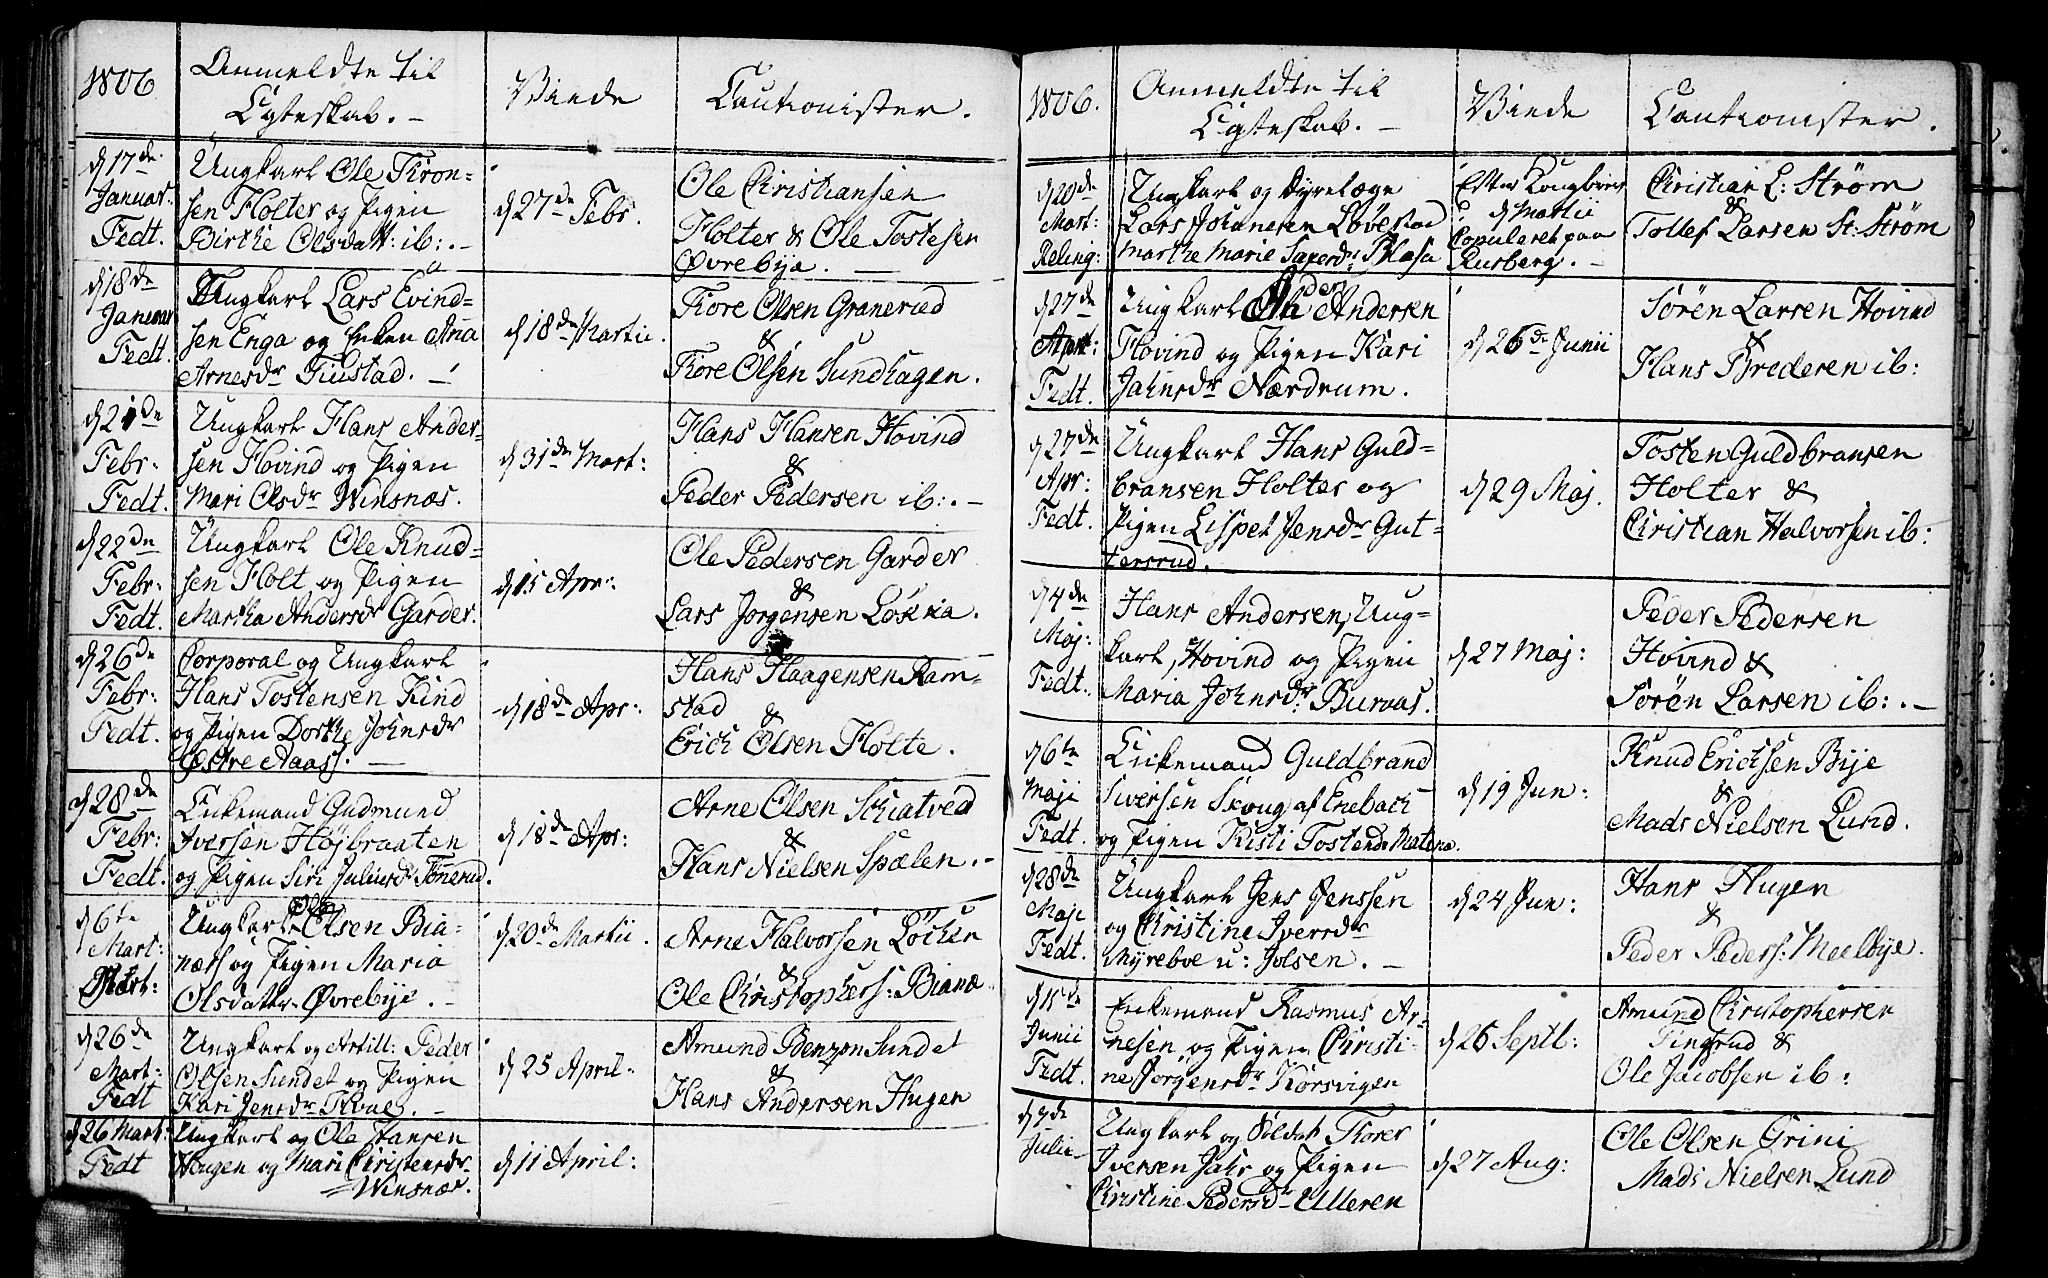 1806
Anmeldte til
Egteskab. -
Viede
Cautionister.
d 17de
Januar.
Fedt.
Ungkarl Ole Thron-
sen Holter og Pigen
Birthe Olsdatt: ib: . -
d 27de Febr.
Ole Christiansen
Holter & Ole Tostesen
Øvrebye. -
d 18de
Januar
Fedt.
Ungkarl Lars Evind-
sen Enga og Enken Ana
Arnesdr
d 18de Martii.
Tore Olsen Graneried
&
Tore Olsen Sundhagen.
d 21de
Febr:
Fedt.
Ungkarl Hans Ander-
sen Hovind og Pigen
Mari Olsdr Winsnæs.
d 31de Mart:
Hans Hansen Hovind
&
Peder Pedersen ib: . -
d 22de
Febr:
Fedt.
Ungkarl Ole Knud-
sen Holt og Pigen
Martha Andersdr Garder.
d 15 Apr:
Ole Pedersen Garder
&
Lars Jorgensen Løkka.
d 26de
Febr:
Fedt.
Corporal og Ungkarl
Hans Tostensen Kind
og Pigen Dorthe Johnsdr
Østre Aaas. -
d 18de Apr:
Hans Haagensen Ram-
stad
&
Erich Olsen Holte.
d 28de
Febr:
Fedt.
Enkemand Gudmund
Iversen Højbraaten
og Pigen Siri Juliusdr Tonerud.
d 18de Apr:
Arne Olsen Schiatved
&
Hans Nielsen Spælen. -
d 6te
Mart:
Ungkarl Ole Olsen Bia-
næss og Pigen Maria
Olsdatter Øvrebye. -
d 20de Martii.
Arne Halvorsen Løcken
&
Ole Christophers: Bianæ
d 26de
Mart:
Fedt
Ungkarl og Artill: Peder
Olsen Sundet og Pigen
Kari Jensdr
d 25 April:
Amund Benzon Sundet
&
Hans Andersen Hugen
d 26 Mart:
Fedt
Ungkarl og Ole Hansen
Haugen og Mari Christensdr
Winsnæs.
d 11 April:
1806.
Anmeldte til
Egteskab. -
Viede
Cautionister.
d 20de
Mart:
Reling:
Ungkarl og Dyrelæge
Lars Johannesen Løvestad
Marthe Marie
Efter Kongbrev
d Martii
Copuleret paa
Rusberg. -
Christian L: Strøm
&
Tollef Larsen St: Strøm
d 27de
Apr:
Fedt.
Ungkarl Andersen
Hovind og Pigen Kari
Jahnsdr Nærdrum.
d 26de Junii
Sören Larsen Hovind
&
Hans Bredesen ib:
d 27de
Apr:
Fedt.
Ungkarl Hans Guld-
bransen Holter og
Pigen Lispet Jensdr Gut-
tersrud.
d 29 Maj.
Tosten Guldbransen
Holter &
Christian Halvorsen ib:
d 4de
Maj:
Fedt.
Hans Andersen, Ung-
karl, Hovind og Pigen
Maria Johnsdr. Buraas.
d 27 Maj:
Peder Pedersen
Hovind &
Sören Larsen ib: . -
d 6te
Maji
Fedt.
Enkemand Guldbrand
Siversen Skoug af Enebach
og Pigen Kisti Tostensdr Matena.
d 19 Jun:
Knud Erichsen Bye
&
Mads Nielsen Lund.
d 28de
Maji
Fedt.
Ungkarl Jens Jenssen
og Christine Iversdr
Myreboe u: Jolsen. -
d 24 Jun:
Hans Hugen
&
Peder Peders: Meelbye.
d 15de
Junii
Fedt.
Enkemand Rasmus Ar-
nesen og Pigen Christi-
ne Jorgensdr Korsvigen
d 26 Septb:
Amund Christophersen
Tingsrud &
Ole Jacobsen ib:
d 7de
Julii
Ungkarl og Soldat Thorer
Iversen Jahr og Pigen
Christine Pedersdr Ulleren
d 27 Aug:
Ole Olsen Grini
Mads Nielsen Lund